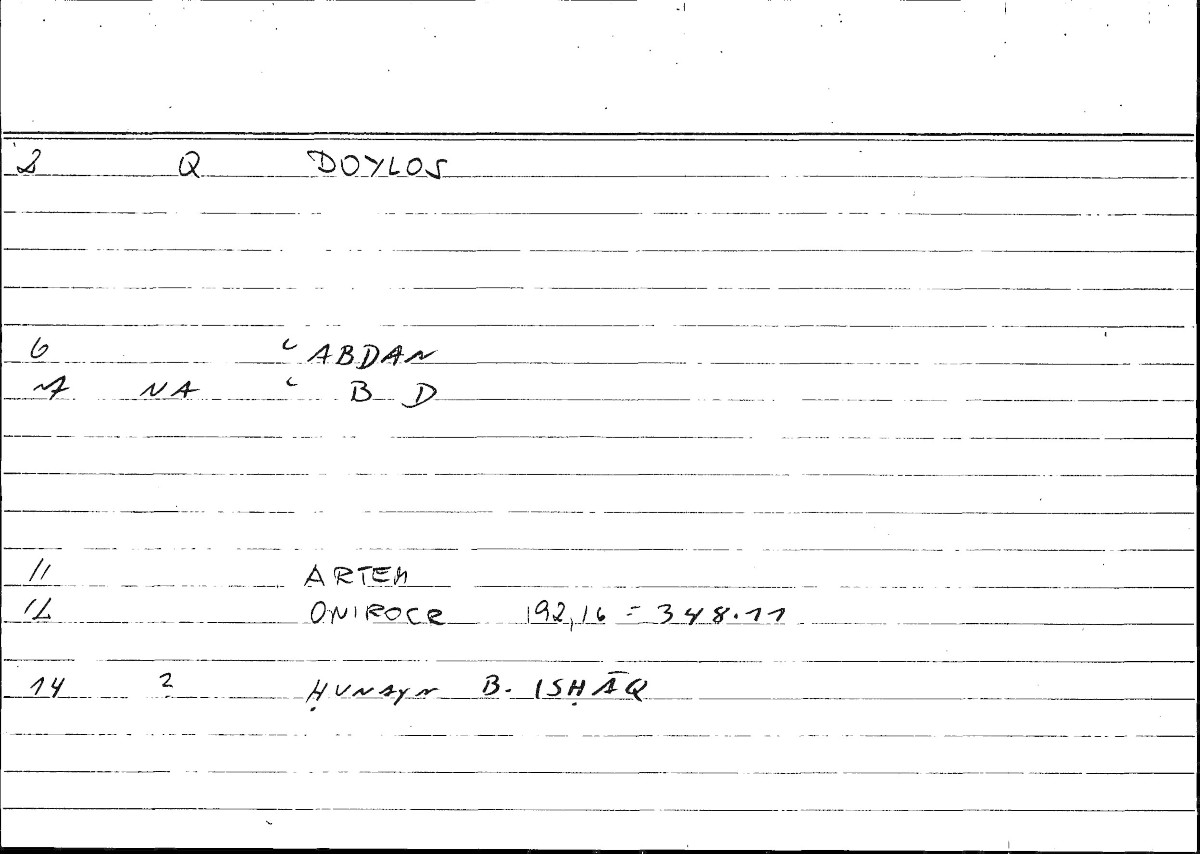 2 Q DOYLOS
6 ʿABDAN
7 NA ʿ B D
11 ARTEM
12 ONIROCR 192,16 = 348.11
14 2 ḤUNAYN B. ISḤĀQ